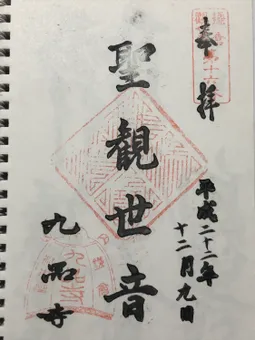 奉拝
平成二十二年
十二月九日
聖觀世音
九品寺